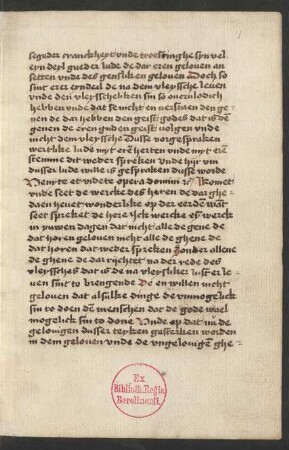 segeder cranckheyt vnde troestinghe syn vel
eyn deyl gueder lude de dar eren gelouen an
setten vnde des gensliken gelouen Doch so
sint erer eyndeil de na dem vleyssche leuen
vnde den vleysscheliken sin so ouerulodich
hebben vnde dat se nicht en verstaen den ge
nen de dar hebben den geist godes dat is de
genen de eren guden geist volgen vnde
nicht dem vleyssche Dusse vorgespraken
wertlike lude myt eren herten vnde myt eren
stemme dit weder spreken vnde hyr vm
dusser lude wille is gespraken dusse worde
Venyte et videte opera domini Komet
vnde seet de wercke des heren de dar ghe
daen heuet wonderlike op der eerden want
seet spreket de here Jck wercke eyn werck
in yuwen dagen dat nicht alle de gene de
dat horen gelouen nicht alle de ghene de
dat horen dat weder spreken Sonder allene
de ghene de dar rychtet na der rede des
vleysches dat is de na vleysliker lust er le
uen sint to brengende De en willen nicht
gelouen dat alsulke dinge de vnmogelick
sin to doen den menschen dat de gode wael
mogelick sin to done Vnde op dat in de
gelouigen dusser teyken gestercken worden
in dem gelouen vnde de vngelouigen ghe
Ex
Biblioth. Regia
Berolinensi.